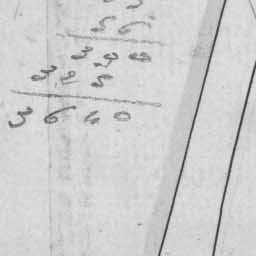 56
390
325
3640